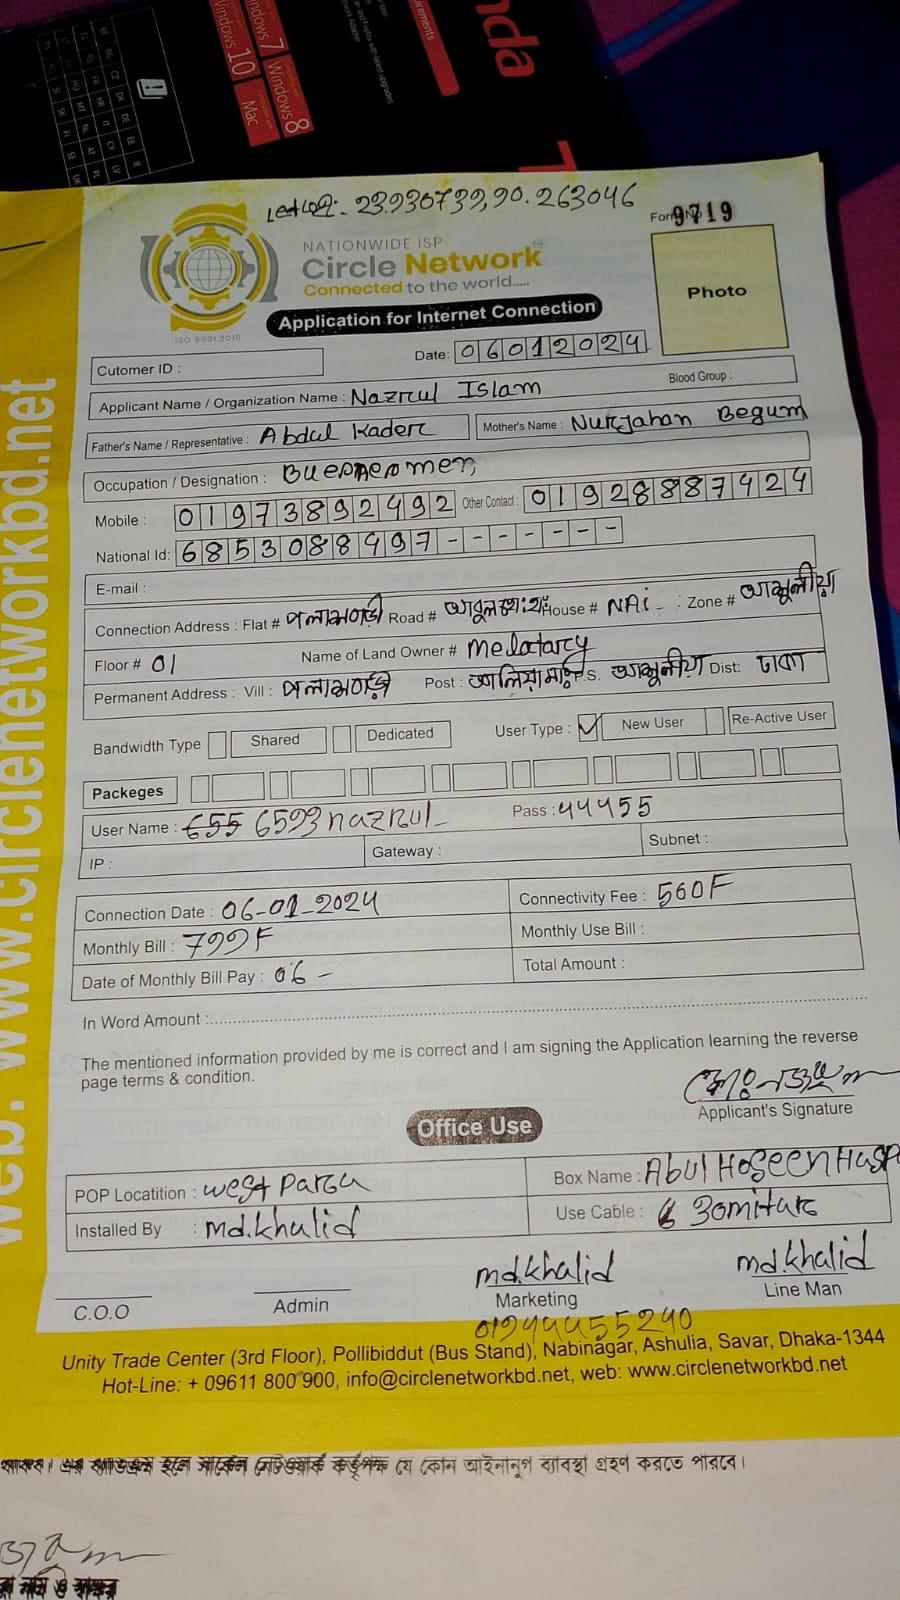 nda
irements
Windows 7
Windows 10
Windows 8
Mac
23.930739,90.263046
Form 9719
NATIONWIDE ISP
Circle Network
Connected to the world.....
ISO 9001:2015
Application for Internet Connection
Photo
Cutomer ID :
Date: 06012024
Applicant Name / Organization Name : Nazrul Islam
Blood Group :
Father's Name / Representative : Abdul Kader
Mother's Name : Nurjahan Begum
Occupation / Designation :
Mobile : 01973892492 Other Contact : 01928887424
National Id: 6853088497-------
E-mail :
Connection Address : Flat # Road # House # NAi - : Zone #
Floor # 01 Name of Land Owner #
Permanent Address : Vill : Post : P.S. Dist: ঢাকা
Bandwidth Type Shared Dedicated User Type : ✓ New User Re-Active User
Packeges
User Name : 6593nazrul Pass : 44455
IP : Gateway : Subnet :
Connection Date : 06-01-2024 Connectivity Fee : 500F
Monthly Bill : 799F Monthly Use Bill :
Date of Monthly Bill Pay : 06 - Total Amount :
In Word Amount :
The mentioned information provided by me is correct and I am signing the Application learning the reverse
page terms & condition.
Applicant's Signature
Office Use
POP Locatition : west para Box Name : Abul Hoseen
Installed By : md.khalid Use Cable : 30mitar
md.khalid md.khalid
C.O.O Admin Marketing Line Man
Unity Trade Center (3rd Floor), Pollibiddut (Bus Stand), Nabinagar, Ashulia, Savar, Dhaka-1344
Hot-Line: + 09611 800 900, info@circlenetworkbd.net, web: www.circlenetworkbd.net
web: www.circlenetworkbd.net
যে কোন আইনানুগ ব্যবস্থা গ্রহণ করতে পারবে।